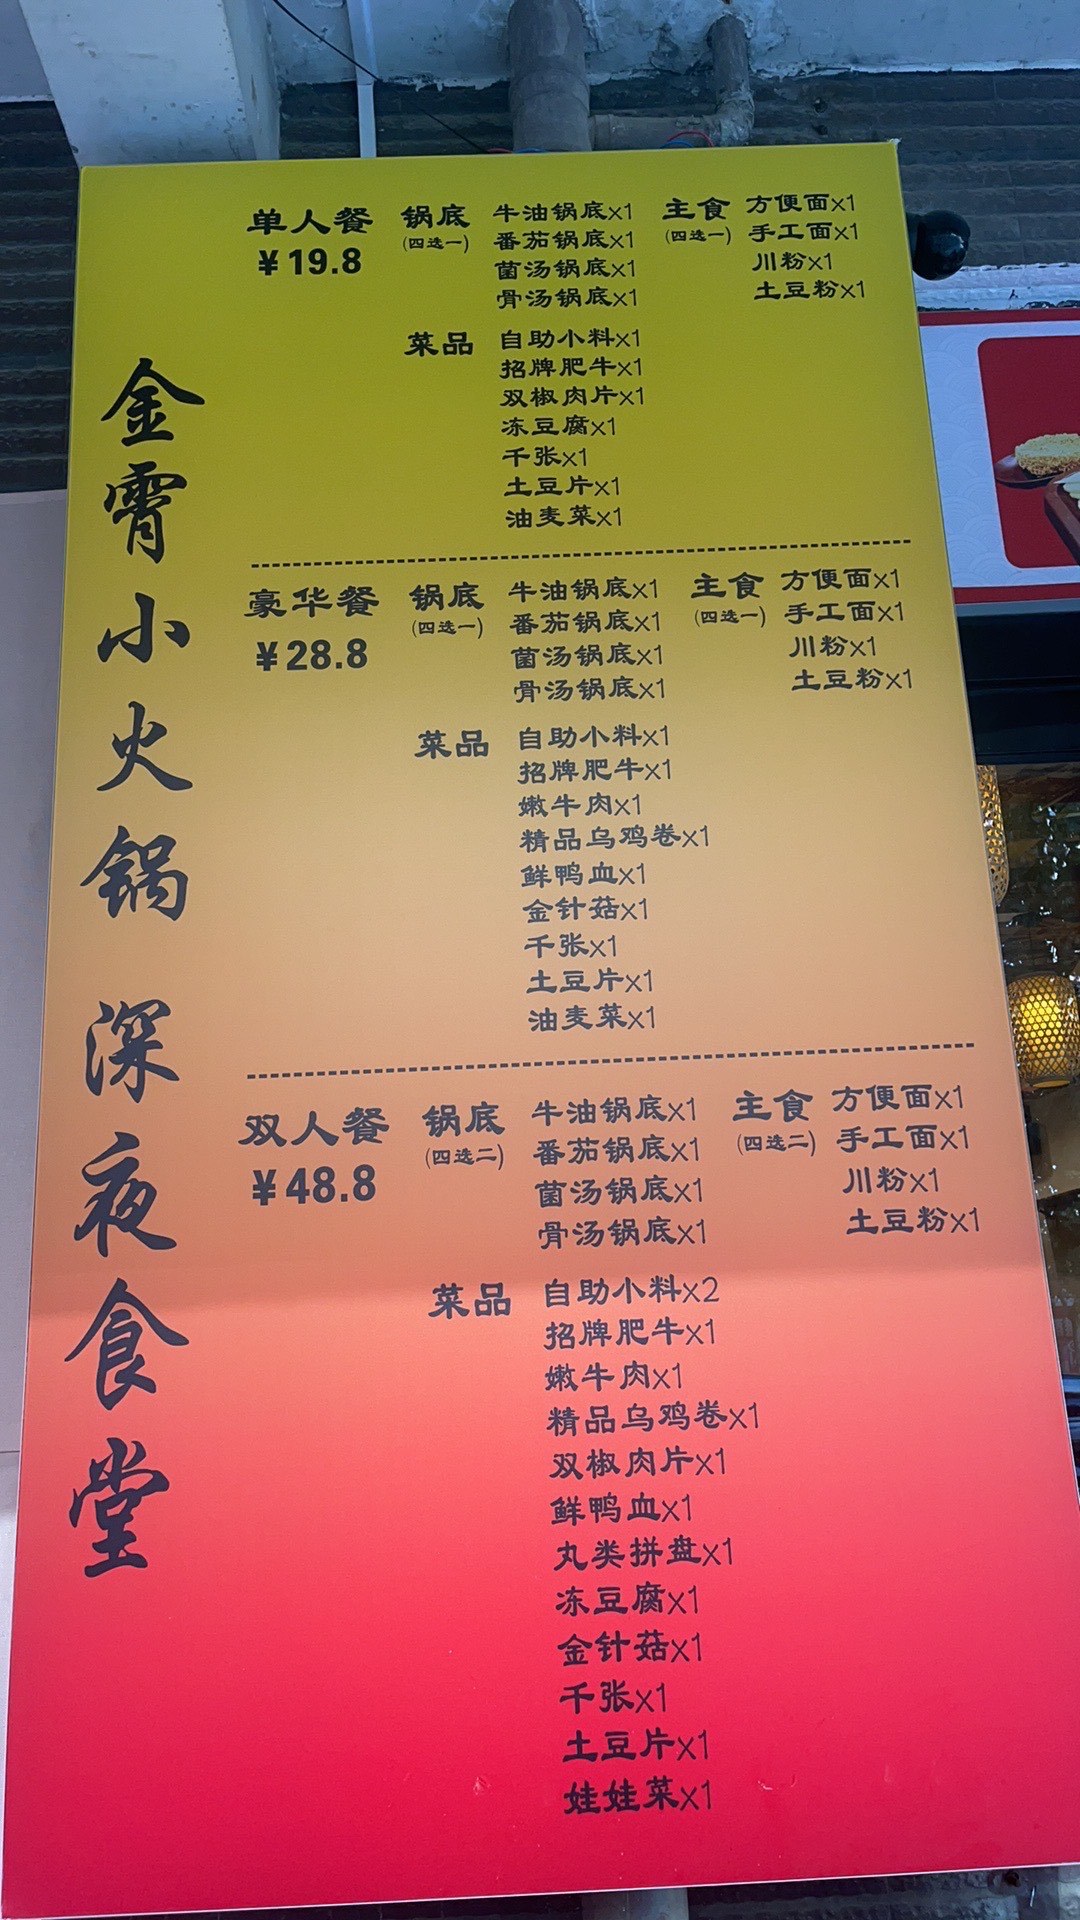 金霄小火锅 深夜食堂
单人餐
¥19.8
锅底
(四选一)
牛油锅底x1
番茄锅底x1
菌汤锅底x1
骨汤锅底x1
主食
(四选一)
方便面x1
手工面x1
川粉x1
土豆粉x1
菜品
自助小料x1
招牌肥牛x1
双椒肉片x1
冻豆腐x1
千张x1
土豆片x1
油麦菜x1
豪华餐
¥28.8
锅底
(四选一)
牛油锅底x1
番茄锅底x1
菌汤锅底x1
骨汤锅底x1
主食
(四选一)
方便面x1
手工面x1
川粉x1
土豆粉x1
菜品
自助小料x1
招牌肥牛x1
嫩牛肉x1
精品乌鸡卷x1
鲜鸭血x1
金针菇x1
千张x1
土豆片x1
油麦菜x1
双人餐
¥48.8
锅底
(四选二)
牛油锅底x1
番茄锅底x1
菌汤锅底x1
骨汤锅底x1
主食
(四选二)
方便面x1
手工面x1
川粉x1
土豆粉x1
菜品
自助小料x2
招牌肥牛x1
嫩牛肉x1
精品乌鸡卷x1
双椒肉片x1
鲜鸭血x1
丸类拼盘x1
冻豆腐x1
金针菇x1
千张x1
土豆片x1
娃娃菜x1